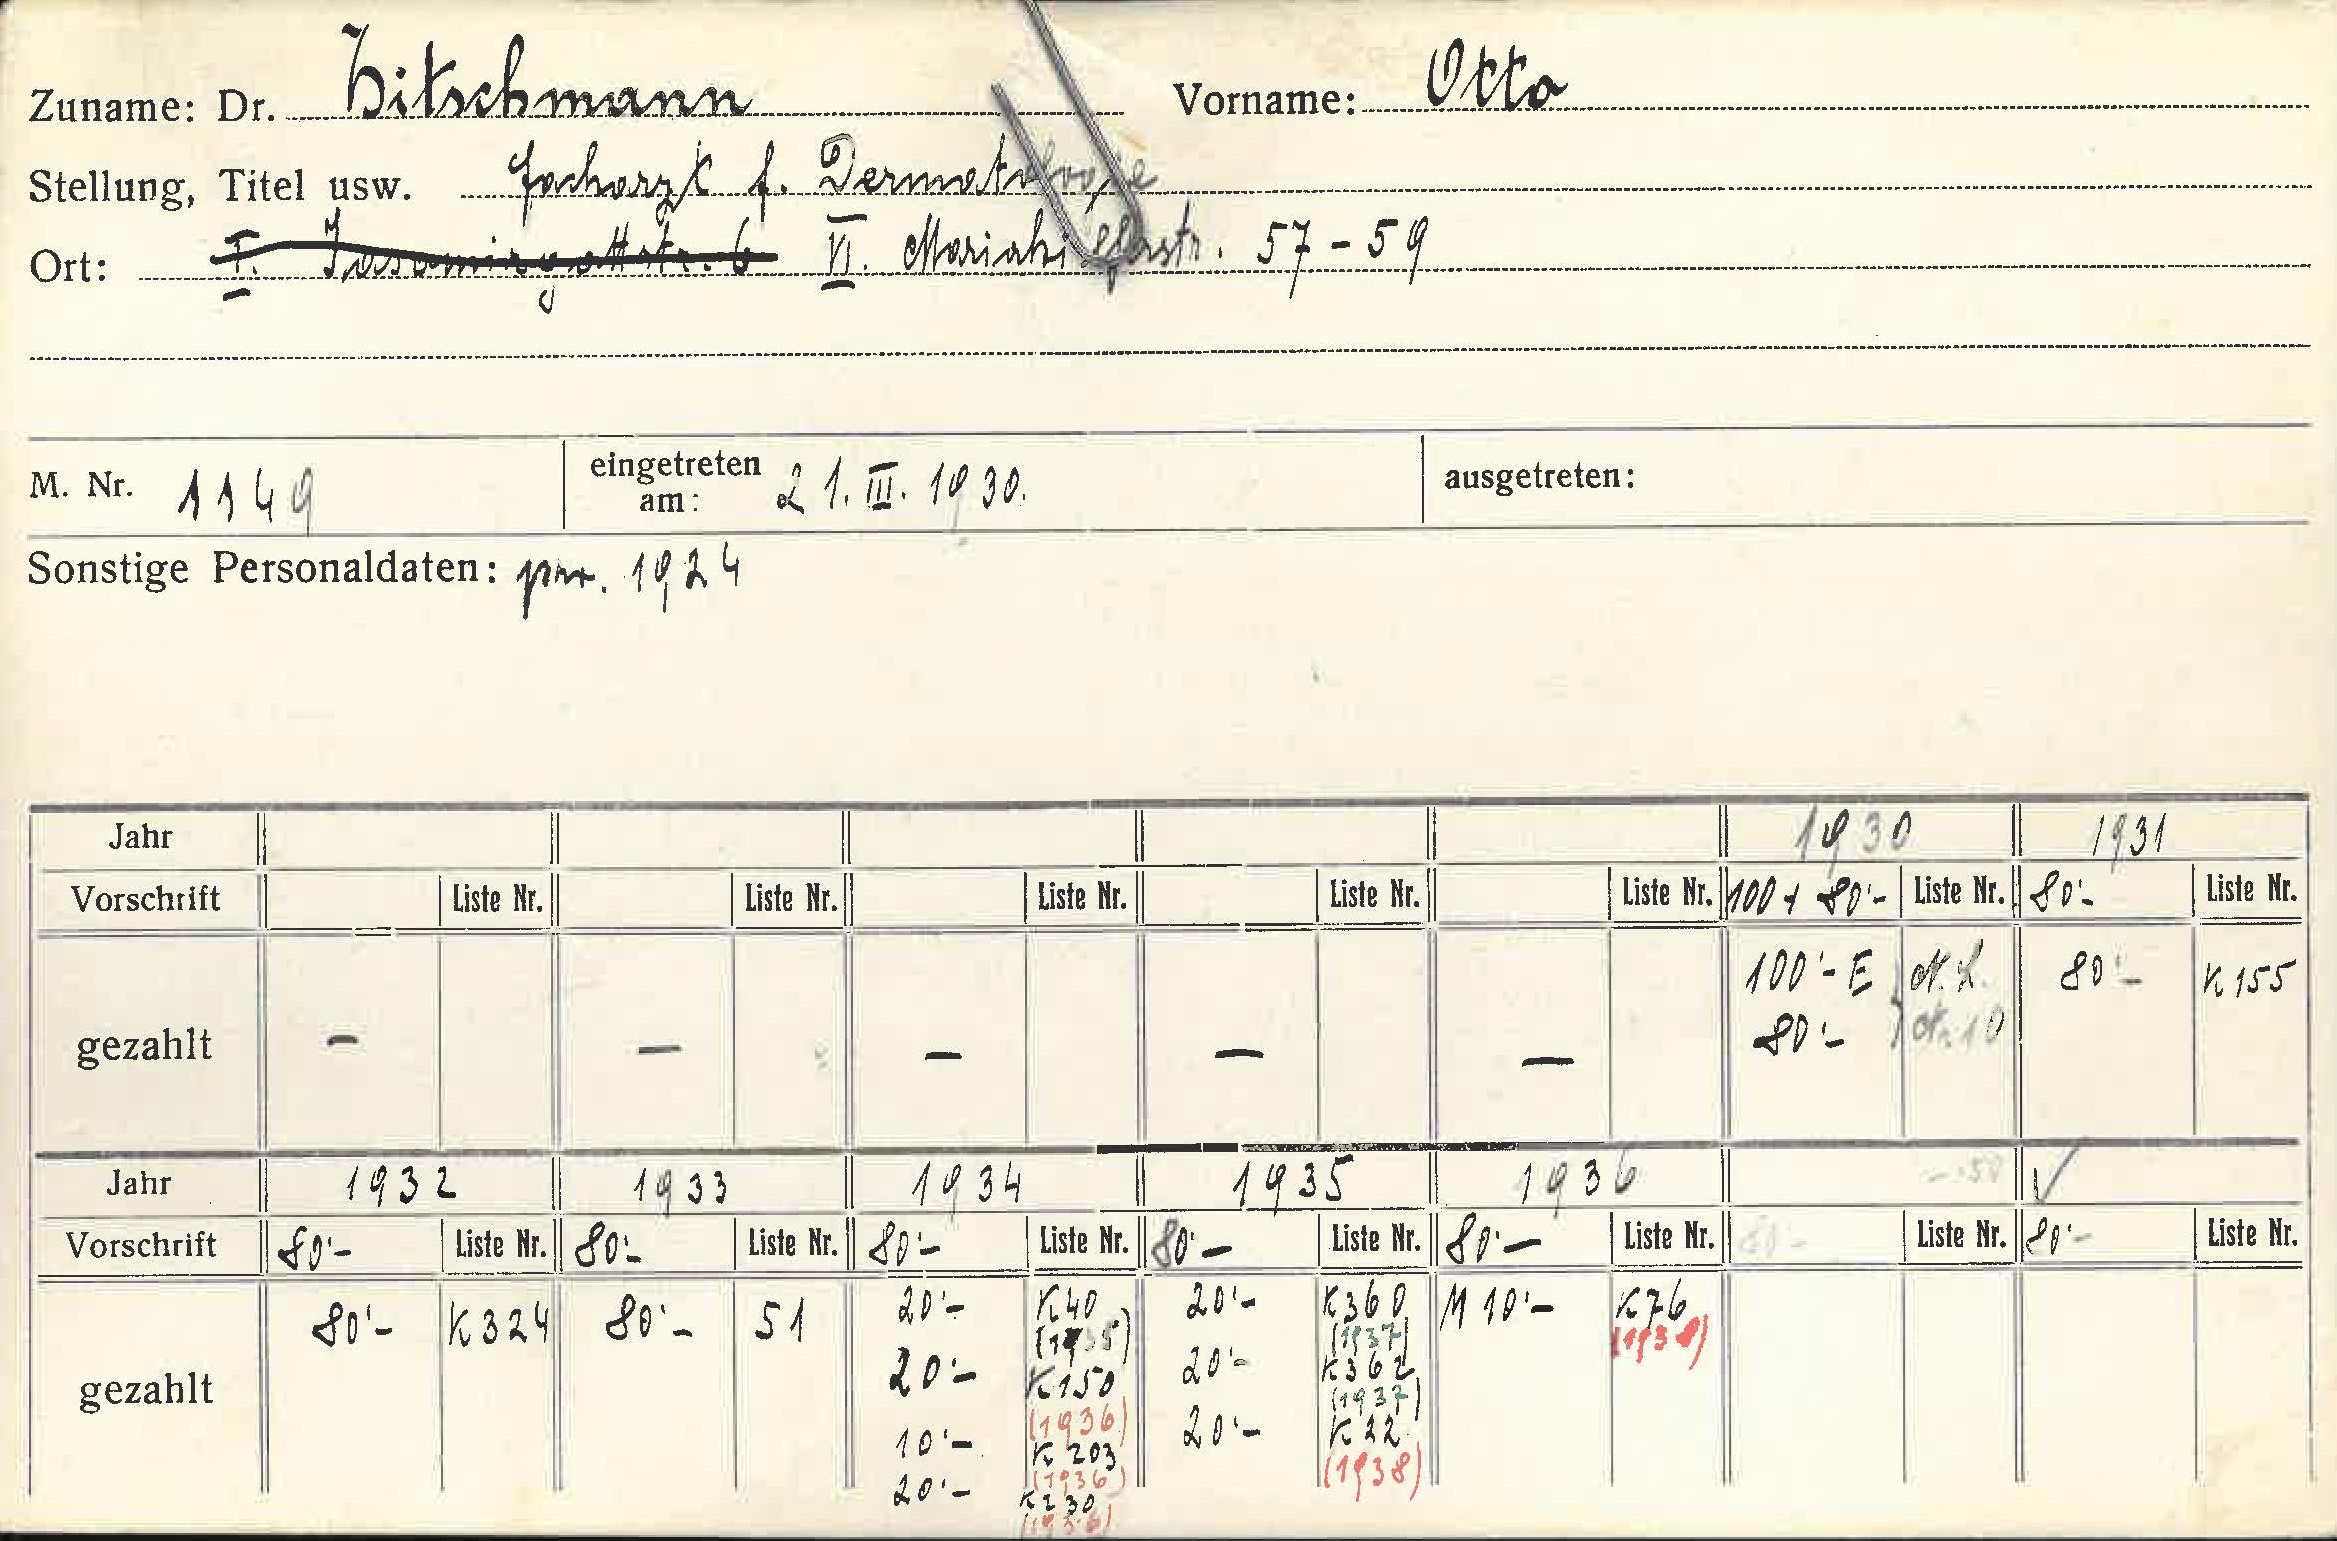 Zuname: Dr. Hitschmann Vorname: Otto
Stellung, Titel usw. Facharzt f. Dermatologie
Ort: I. Jasomirgottstr. 6 VI. Mariahilferstr. 57-59
M. Nr. 1149 eingetreten am: 21. III. 1930. ausgetreten:
Sonstige Personaldaten: pr. 1924
Jahr 1930 1931
Vorschrift Liste Nr. Liste Nr. Liste Nr. Liste Nr. Liste Nr. 100 + 80'- Liste Nr. 80'- Liste Nr.
gezahlt - - - - - 100'- E 80'- 80'- K 155
Jahr 1932 1933 1934 1935 1936
Vorschrift 80'- Liste Nr. 80'- Liste Nr. 80'- Liste Nr. 80'- Liste Nr. 80'- Liste Nr. 80'- Liste Nr. 80'- Liste Nr.
gezahlt 80'- K 324 80'- 51
20'- K 40 (1935)
20'- K 150 (1936)
10'- K 203 (1936)
20'- K 230 (1936)
20'- K 360 (1937)
20'- K 362 (1937)
20'- K 22 (1938)
M 10'- K 76 (1938)